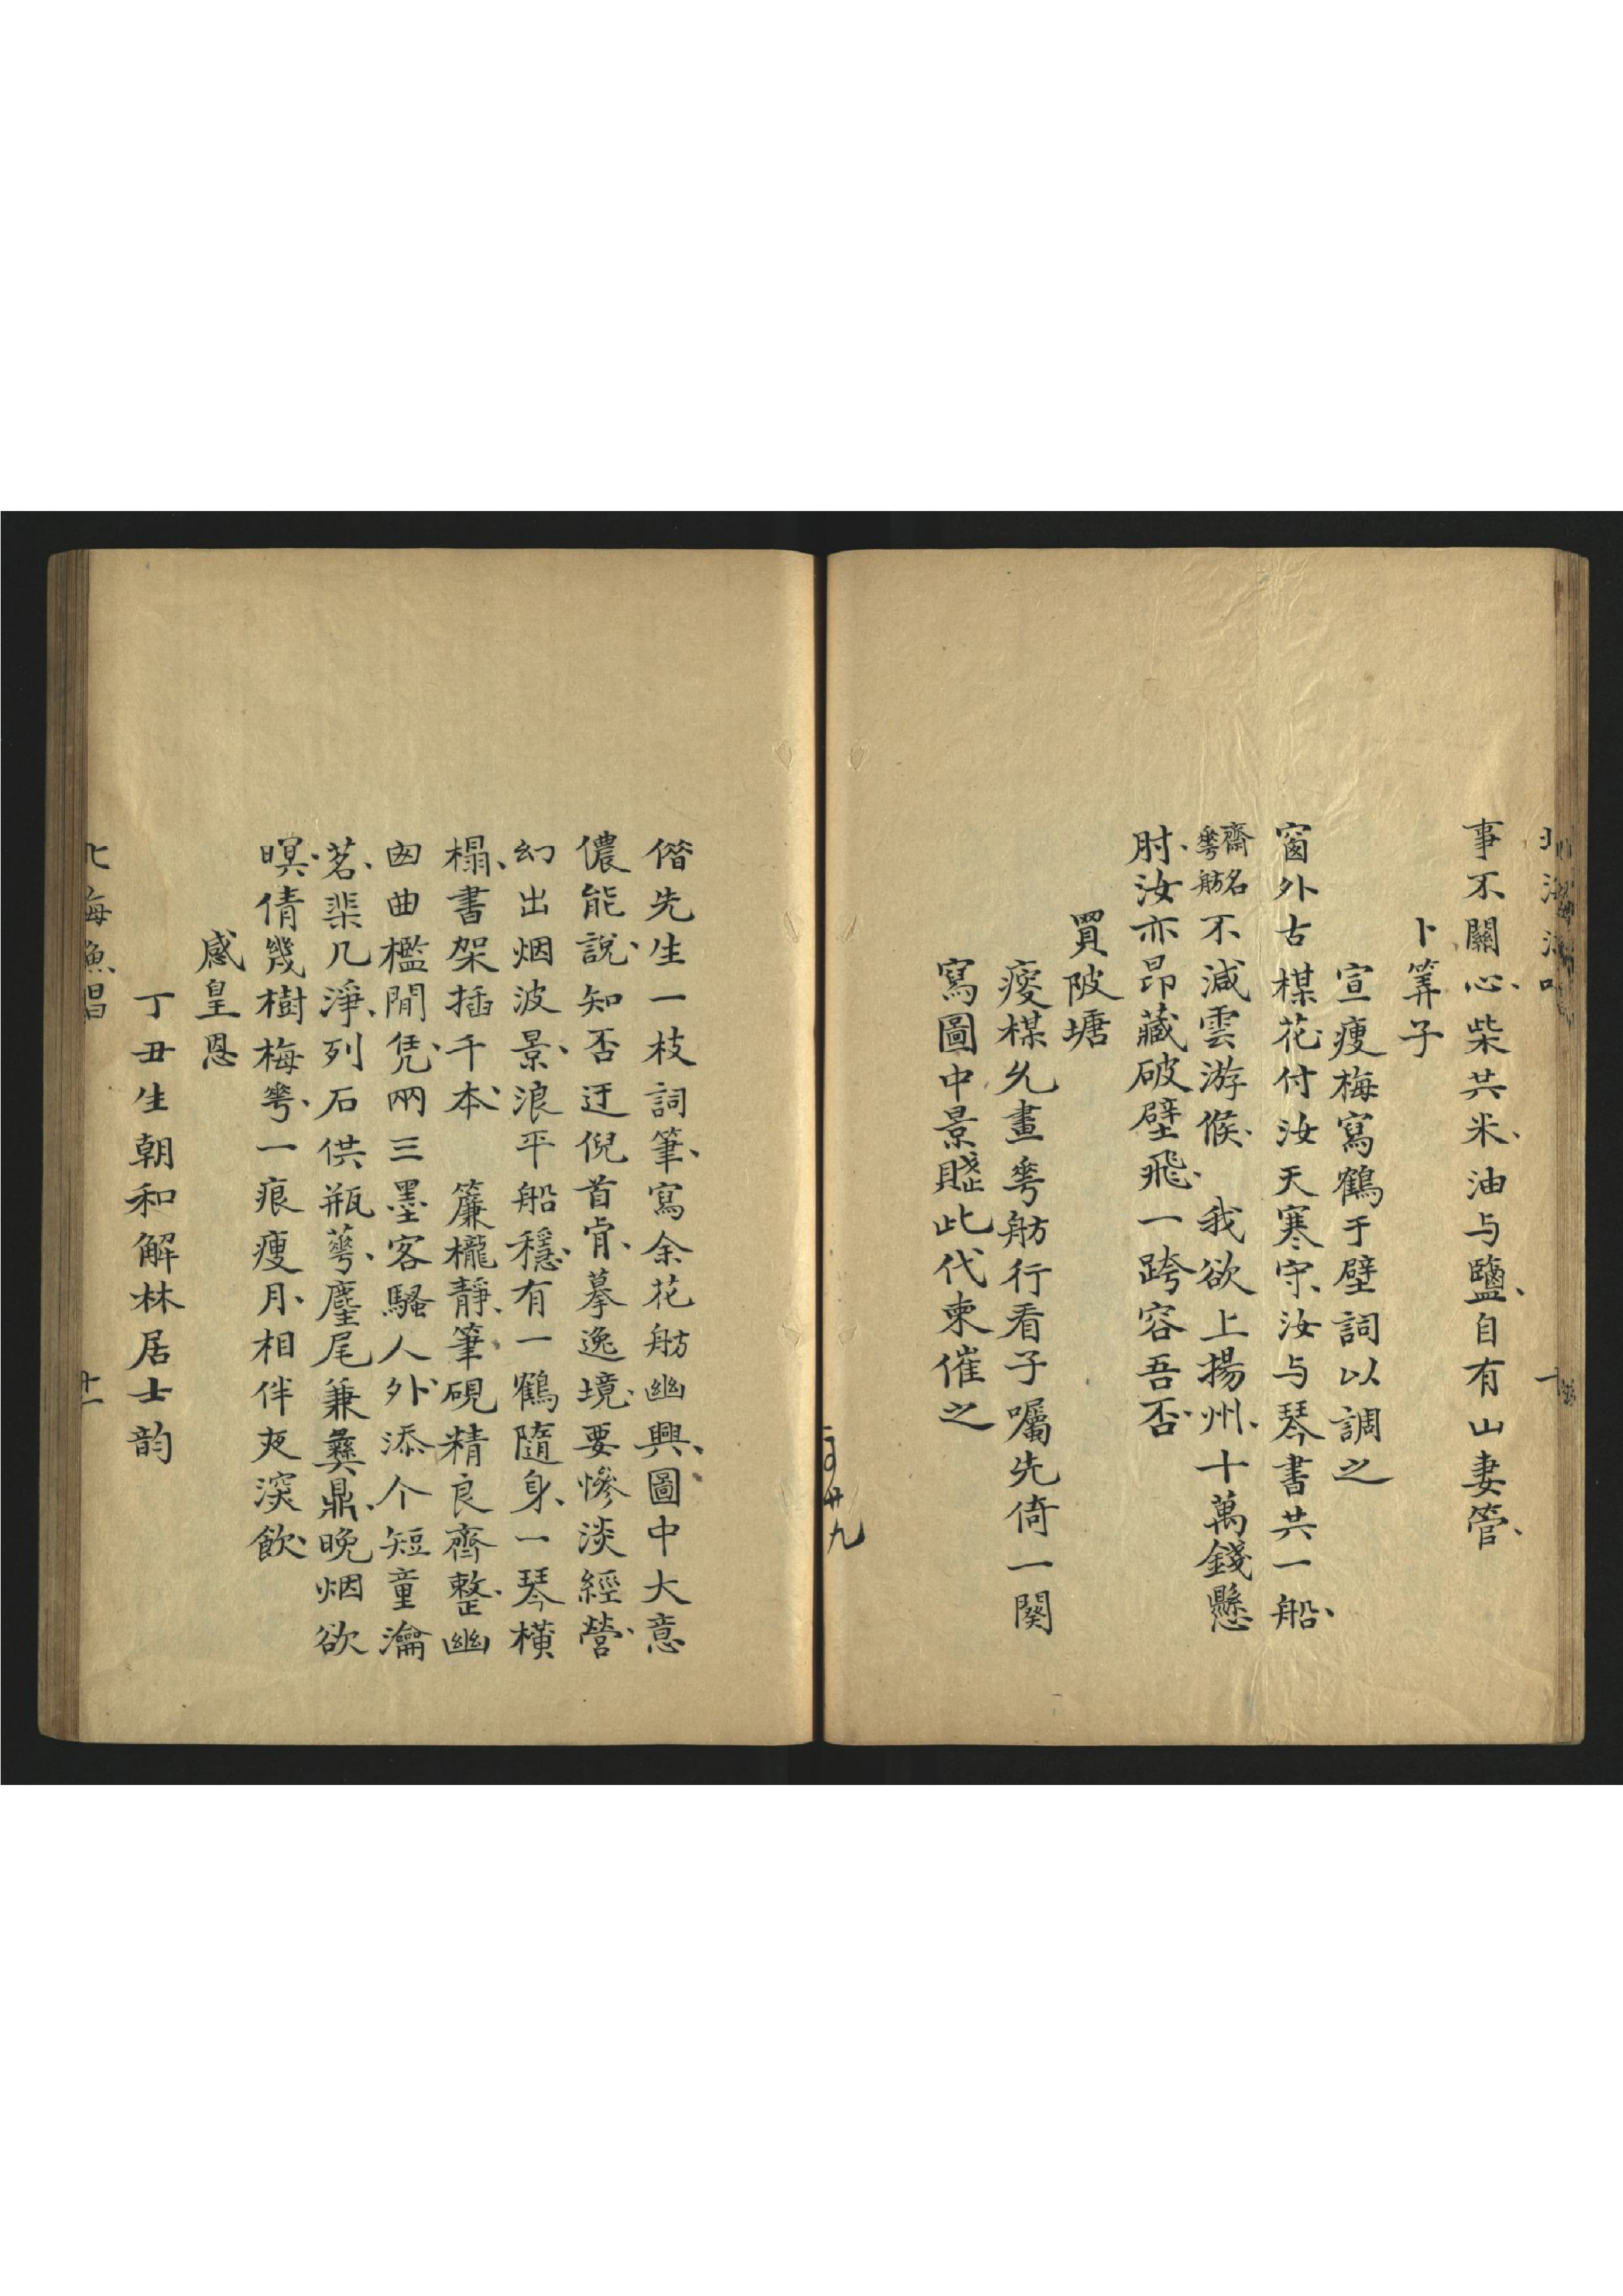 事不關心、柴共米、油与鹽、自有山妻管、
卜筭子
宣瘦梅寫鶴于壁詞以調之
窗外古楳花付汝天寒守、汝与琴書共一船、
齋名
蕚舫
不減雲游候、　我欲上揚州、十萬錢懸
肘、汝亦昂藏破壁飛、一跨容吾否、
買陂塘
瘦楳久畫蕚舫行看子囑先倚一闋
寫圖中景賤此代柬催之
偺先生一枝詞筆、寫余花舫幽興、圖中大意
儂能說、知否迂倪首肯、摹逸境、要慘淡經營、
幻出烟波景、浪平船穩、有一鶴隨身、一琴橫
榻、書架插千本、　簾櫳靜、筆硯精良齊整、幽
囪曲檻閒凭、兩三墨客騷人外、添个短童瀹
茗、棐几淨、列石供瓶蕚、麈尾兼彝鼎、晚烟欲
暝、倩幾樹梅蕚、一痕瘦月、相伴夜深飲、
感皇恩
丁丑生朝和解林居士韵
北海漁唱
十一